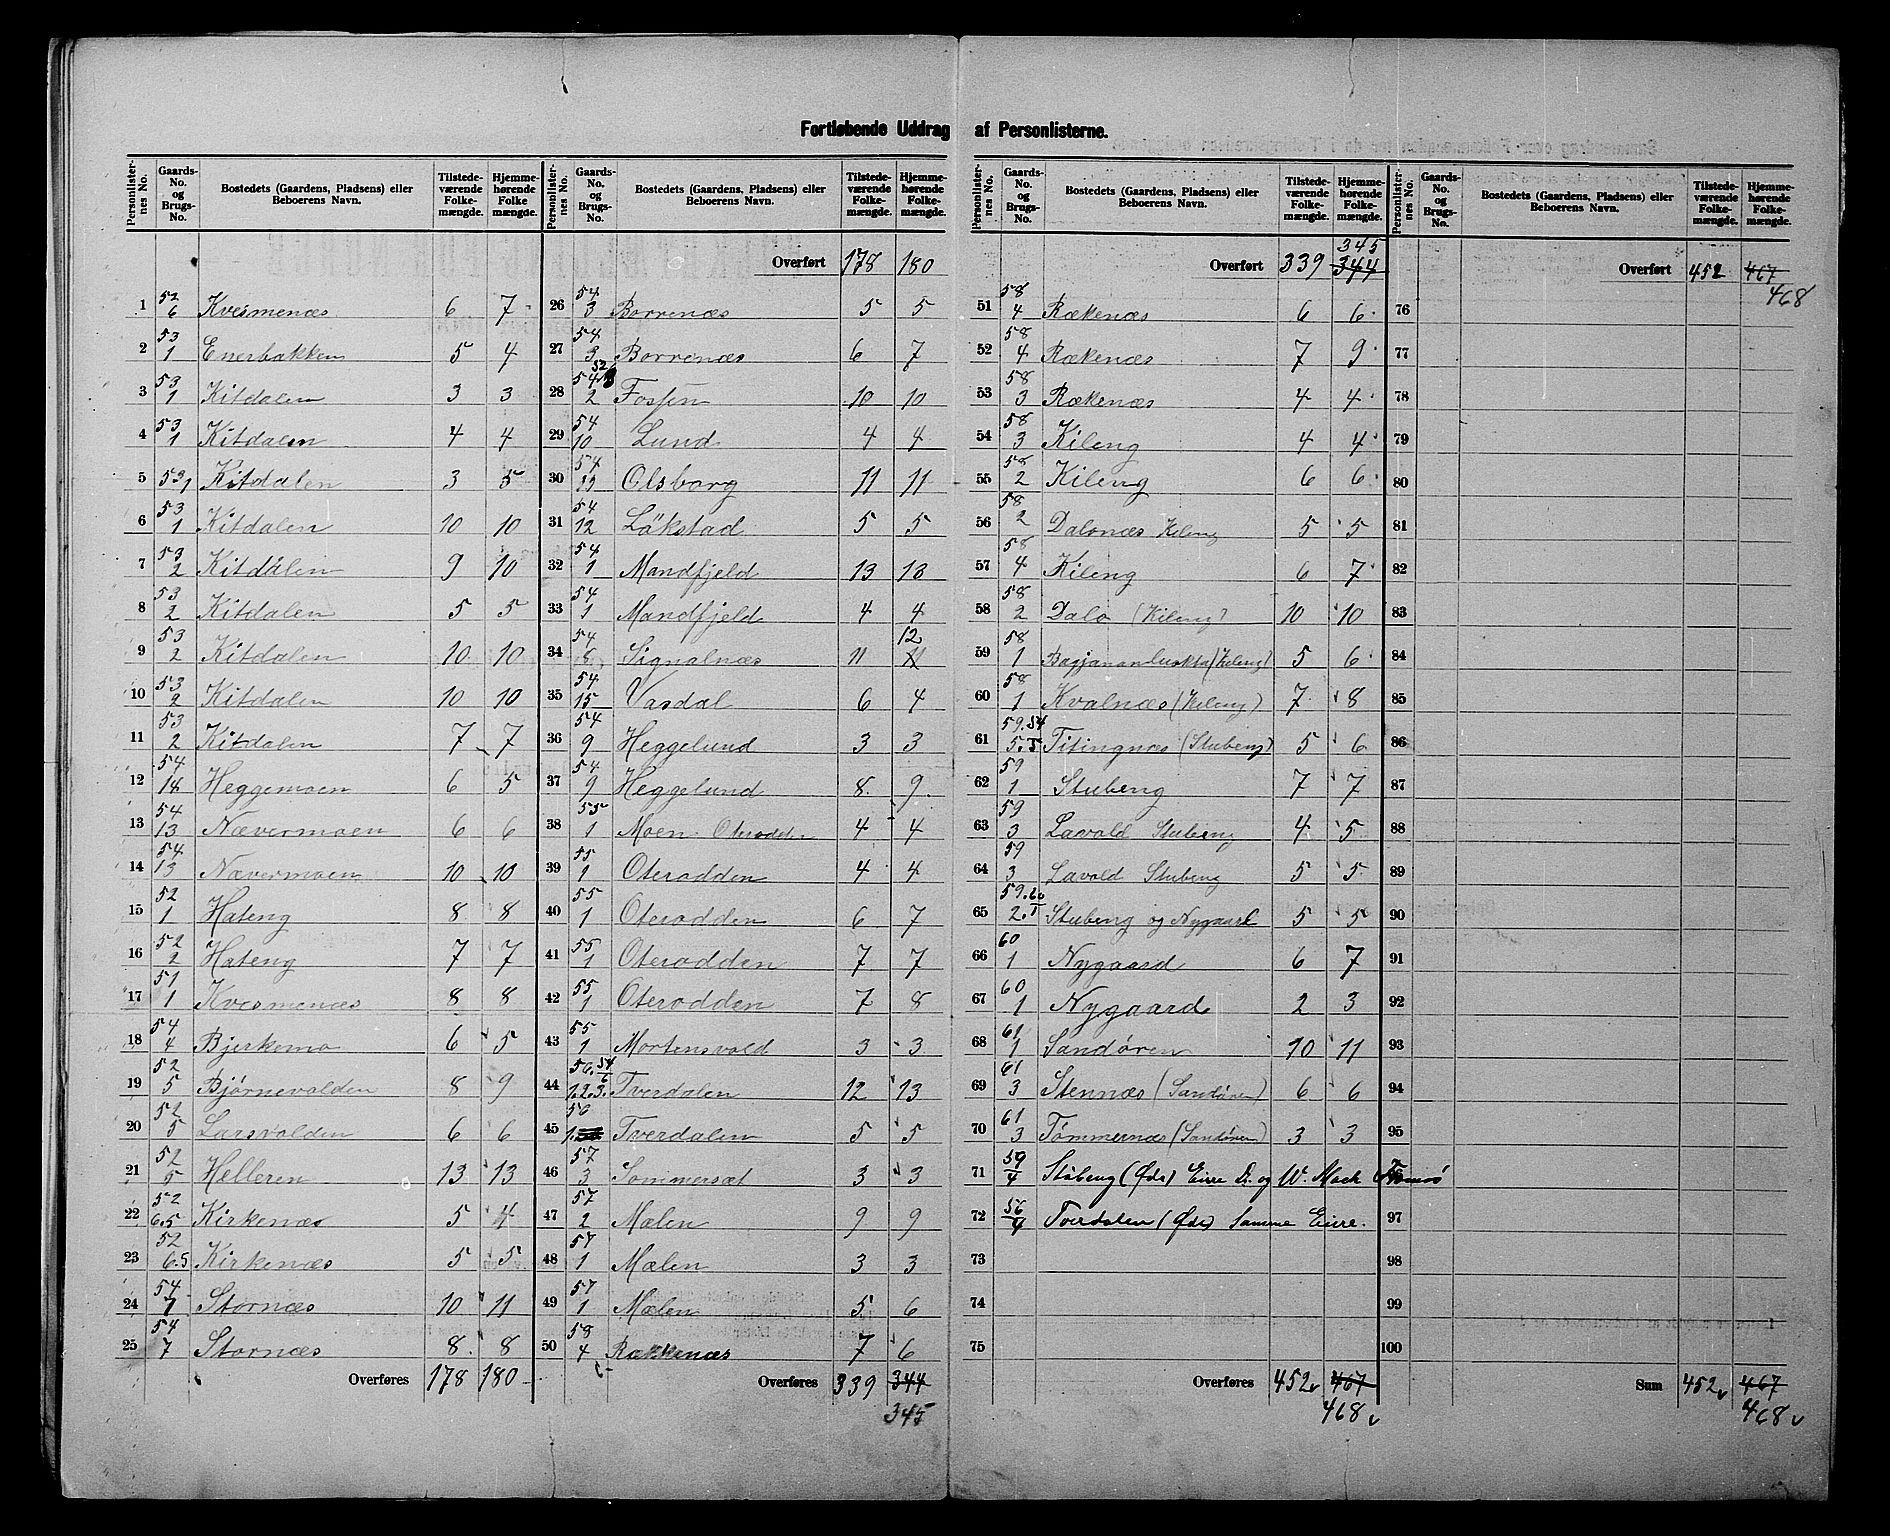 Fortløbende Uddrag af Personlisterne.
Personlister-nes No. | Gaards-No. og Brugs-No. | Bostedets (Gaardens, Pladsens) eller Beboerens Navn. | Tilstede-værende Folke-mængde. | Hjemme-hørende Folke mængde.
1 52/6 Kvesmenæs 6 7
2 53/1 Enerbakken 5 4
3 53/1 Kitdalen 3 3
4 53/1 Kitdalen 4 4
5 53,1 Kitdalen 3 5
6 53/1 Kitdalen 10 10
7 53/2 Kitdalen 9 10
8 53/2 Kitdalen 5 5
9 53/2 Kitdalen 10 10
10 53/2 Kitdalen 10 10
11 53/2 Kitdalen 7 7
12 54/14 Heggemoen 6 5
13 54/13 Nævermoen 6 6
14 54/13 Nævermoen 10 10
15 52/1 Hateng 8 8
16 52/2 Hateng 7 7
17 51/1 Kvesmenæs 8 8
18 54/4 Bjerkemo 6 5
19 52/5 Bjørnevolden 8 9
20 52/5 Larsvolden 6 6
21 52/5 Helleren 13 13
22 52/6.5 Kirkenæs 5 4
23 52/6.5 Kirkenæs 5 5
24 54/7 Stornæs 10 11
25 54/7 Stornæs 8 8
Overføres 178 180
Personlister-nes No. | Gaards-No. og Brugs-No. | Bostedets (Gaardens, Pladsens) eller Beboerens Navn. | Tilstede-værende Folke-mængde. | Hjemme-hørende Folke-mængde.
Overført 178 180
26 54/3 Borrenæs 5 5
27 54/3 Borrenæs 6 7
28 54/2 Fossen 10 10
29 54/10 Lund 4 4
30 54/11 Olsborg 11 11
31 54/12 Løkstad 5 5
32 54/1 Mandfjeld 13 13
33 54/1 Mandfjeld 4 4
34 54/8 Signalnæs 11 11 12
35 54/15 Vasdal 6 4
36 54/9 Heggelund 3 3
37 54/9 Heggelund 8 9
38 55/1 Moen Oteradden 4 4
39 55/1 Oteradden 4 4
40 55/1 Oteradden 6 7
41 55/1 Oteradden 7 7
42 55/1 Oteradden 7 8
43 55/1 Mortensvold 3 3
44 56.54/6 1.2.3. Tverdalen 12 13
45 56/1 Tverdalen 5 5
46 57/3 Sommersæt 3 3
47 57/2 Mælen 9 9
48 57/1 Mælen 3 3
49 57/1 Mælen 5 6
50 58/4 Rækkenæs 7 6
Overføres 339 344
345
Personlister-nes No. | Gaards-No. og Brugs-No. | Bostedets (Gaardens, Pladsens) eller Beboerens Navn. | Tilstede-værende Folke-mængde. | Hjemme-hørende Folke-mængde.
345
Overført 339 344
51 58/4 Rækenæs 6 6
52 58/4 Rækenæs 7 9
53 58/3 Rækenæs 4 4
54 58/3 Kileng 4 4
55 58/2 Kileng 6 6
56 58/2 Dalonæs Kileng 5 5
57 58/4 Kileng 6 7
58 58/2 Dalo (Kileng) 10 10
59 58/1 (Kileng) 5 6
60 58/1 Kvalnæs (Kileng) 7 8
61 59.54/5.5 Titingnæs (Stubeng) 5 6
62 59/1 Stubeng 7 7
63 59/3 Lavold Stubeng 4 5
64 59/3 Lavold Stubeng 5 5
65 59.60/2.1 Stubeng og Nygaard 5 5
66 60/1 Nygaard 6 7
67 60/1 Nygaard 2 3
68 61/1 Sandøren 10 11
69 61/3 Stennæs (Sandøren) 6 6
70 61/3 Tømmernæs (Sandøren) 3 3
71 59/4 Stubeng (Øde) Eiere D. og W. Mack Tromsø
72 56/4 Tverdalen (Øde) Samme Eiere.
73
74
75
Overføres 452 467
468
Personlister-nes No. | Gaards-No. og Brugs-No. | Bostedets (Gaardens, Pladsens) eller Beboerens Navn. | Tilstede-værende Folke-mængde. | Hjemme-hørende Folke-mængde.
Overført 452 467
468
76
77
78
79
80
81
82
83
84
85
86
87
88
89
90
91
92
93
94
95
96
97
98
99
100
Sum 452 467
468